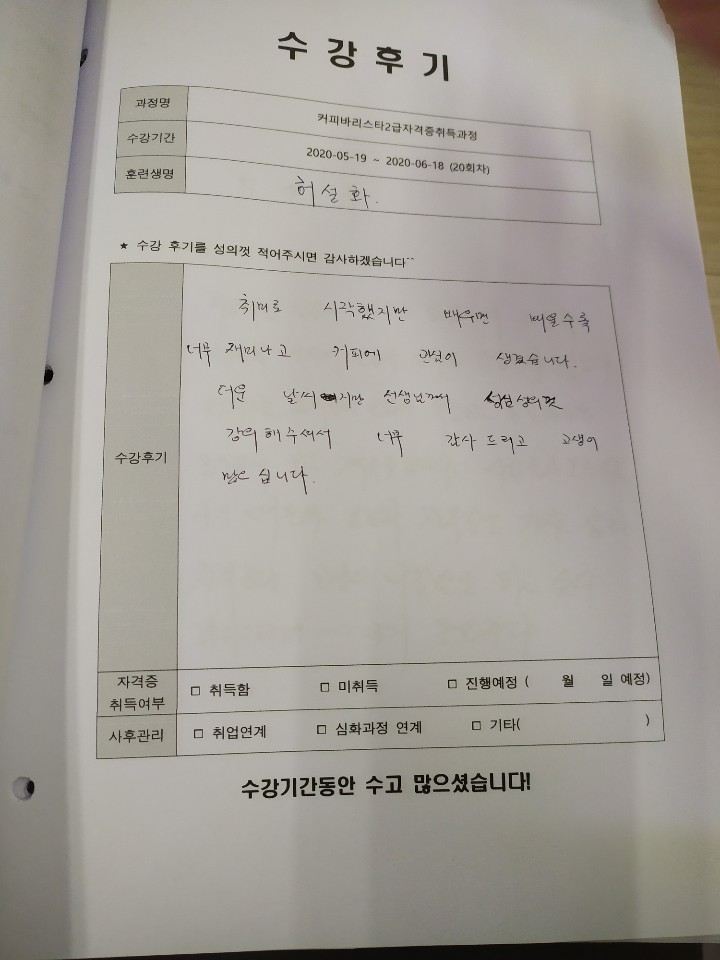 수강후기
과정명 커피바리스타2급자격증취득과정
수강기간 2020-05-19 ~ 2020-06-18 (20회차)
훈련생명 허설화.
★ 수강 후기를 성의껏 적어주시면 감사하겠습니다^^
수강후기
취미로 시작했지만 배우면 배울수록
너무 재미나고 커피에 관심이 생겼습니다.
더운 날씨 지만 선생님께서 성의껏
강의해주셔서 너무 감사드리고 고생이
많으십니다.
자격증 취득여부 □ 취득함 □ 미취득 □ 진행예정 ( 월 일 예정)
사후관리 □ 취업연계 □ 심화과정 연계 □ 기타( )
수강기간동안 수고 많으셨습니다!